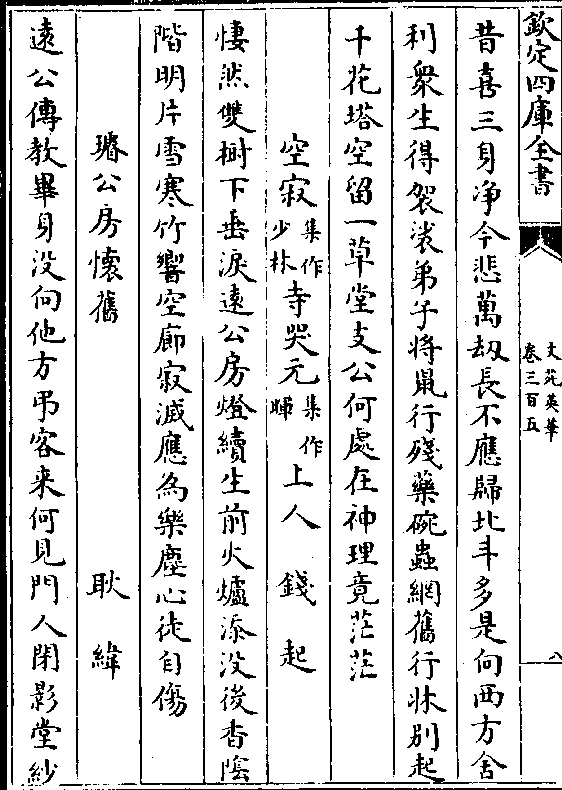 欽定四庫全書
文苑英華
卷三百五
八
昔喜三身净今悲萬刼長不應歸北斗多是向西方舍
利衆生得袈裟弟子将鼠行殘藥碗蟲網舊行牀别起
千花塔空留一草堂支公何處在神理竟茫茫
空寂集作少林寺哭元集作暉上人　錢起
悽然雙樹下垂淚逺公房燈續生前火爐添没後香陰
階明片雪寒竹響空廊寂滅應為樂塵心徒自傷
璿公房懷舊　耿緯
逺公傳教畢身没向他方弔客来何見門人閉影堂紗